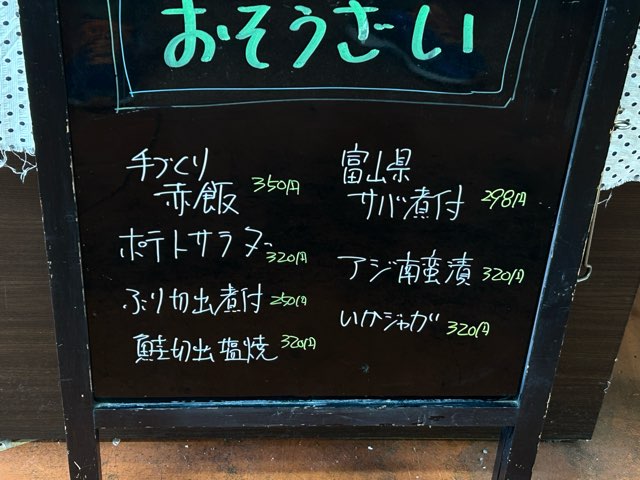 おそうざい
手づくり
赤飯 350円
ポテトサラダ 320円
ぶり切出煮付 250円
鮭切出塩焼 320円
富山県
サバ煮付 298円
アジ南蛮漬 320円
いかジャガ 320円